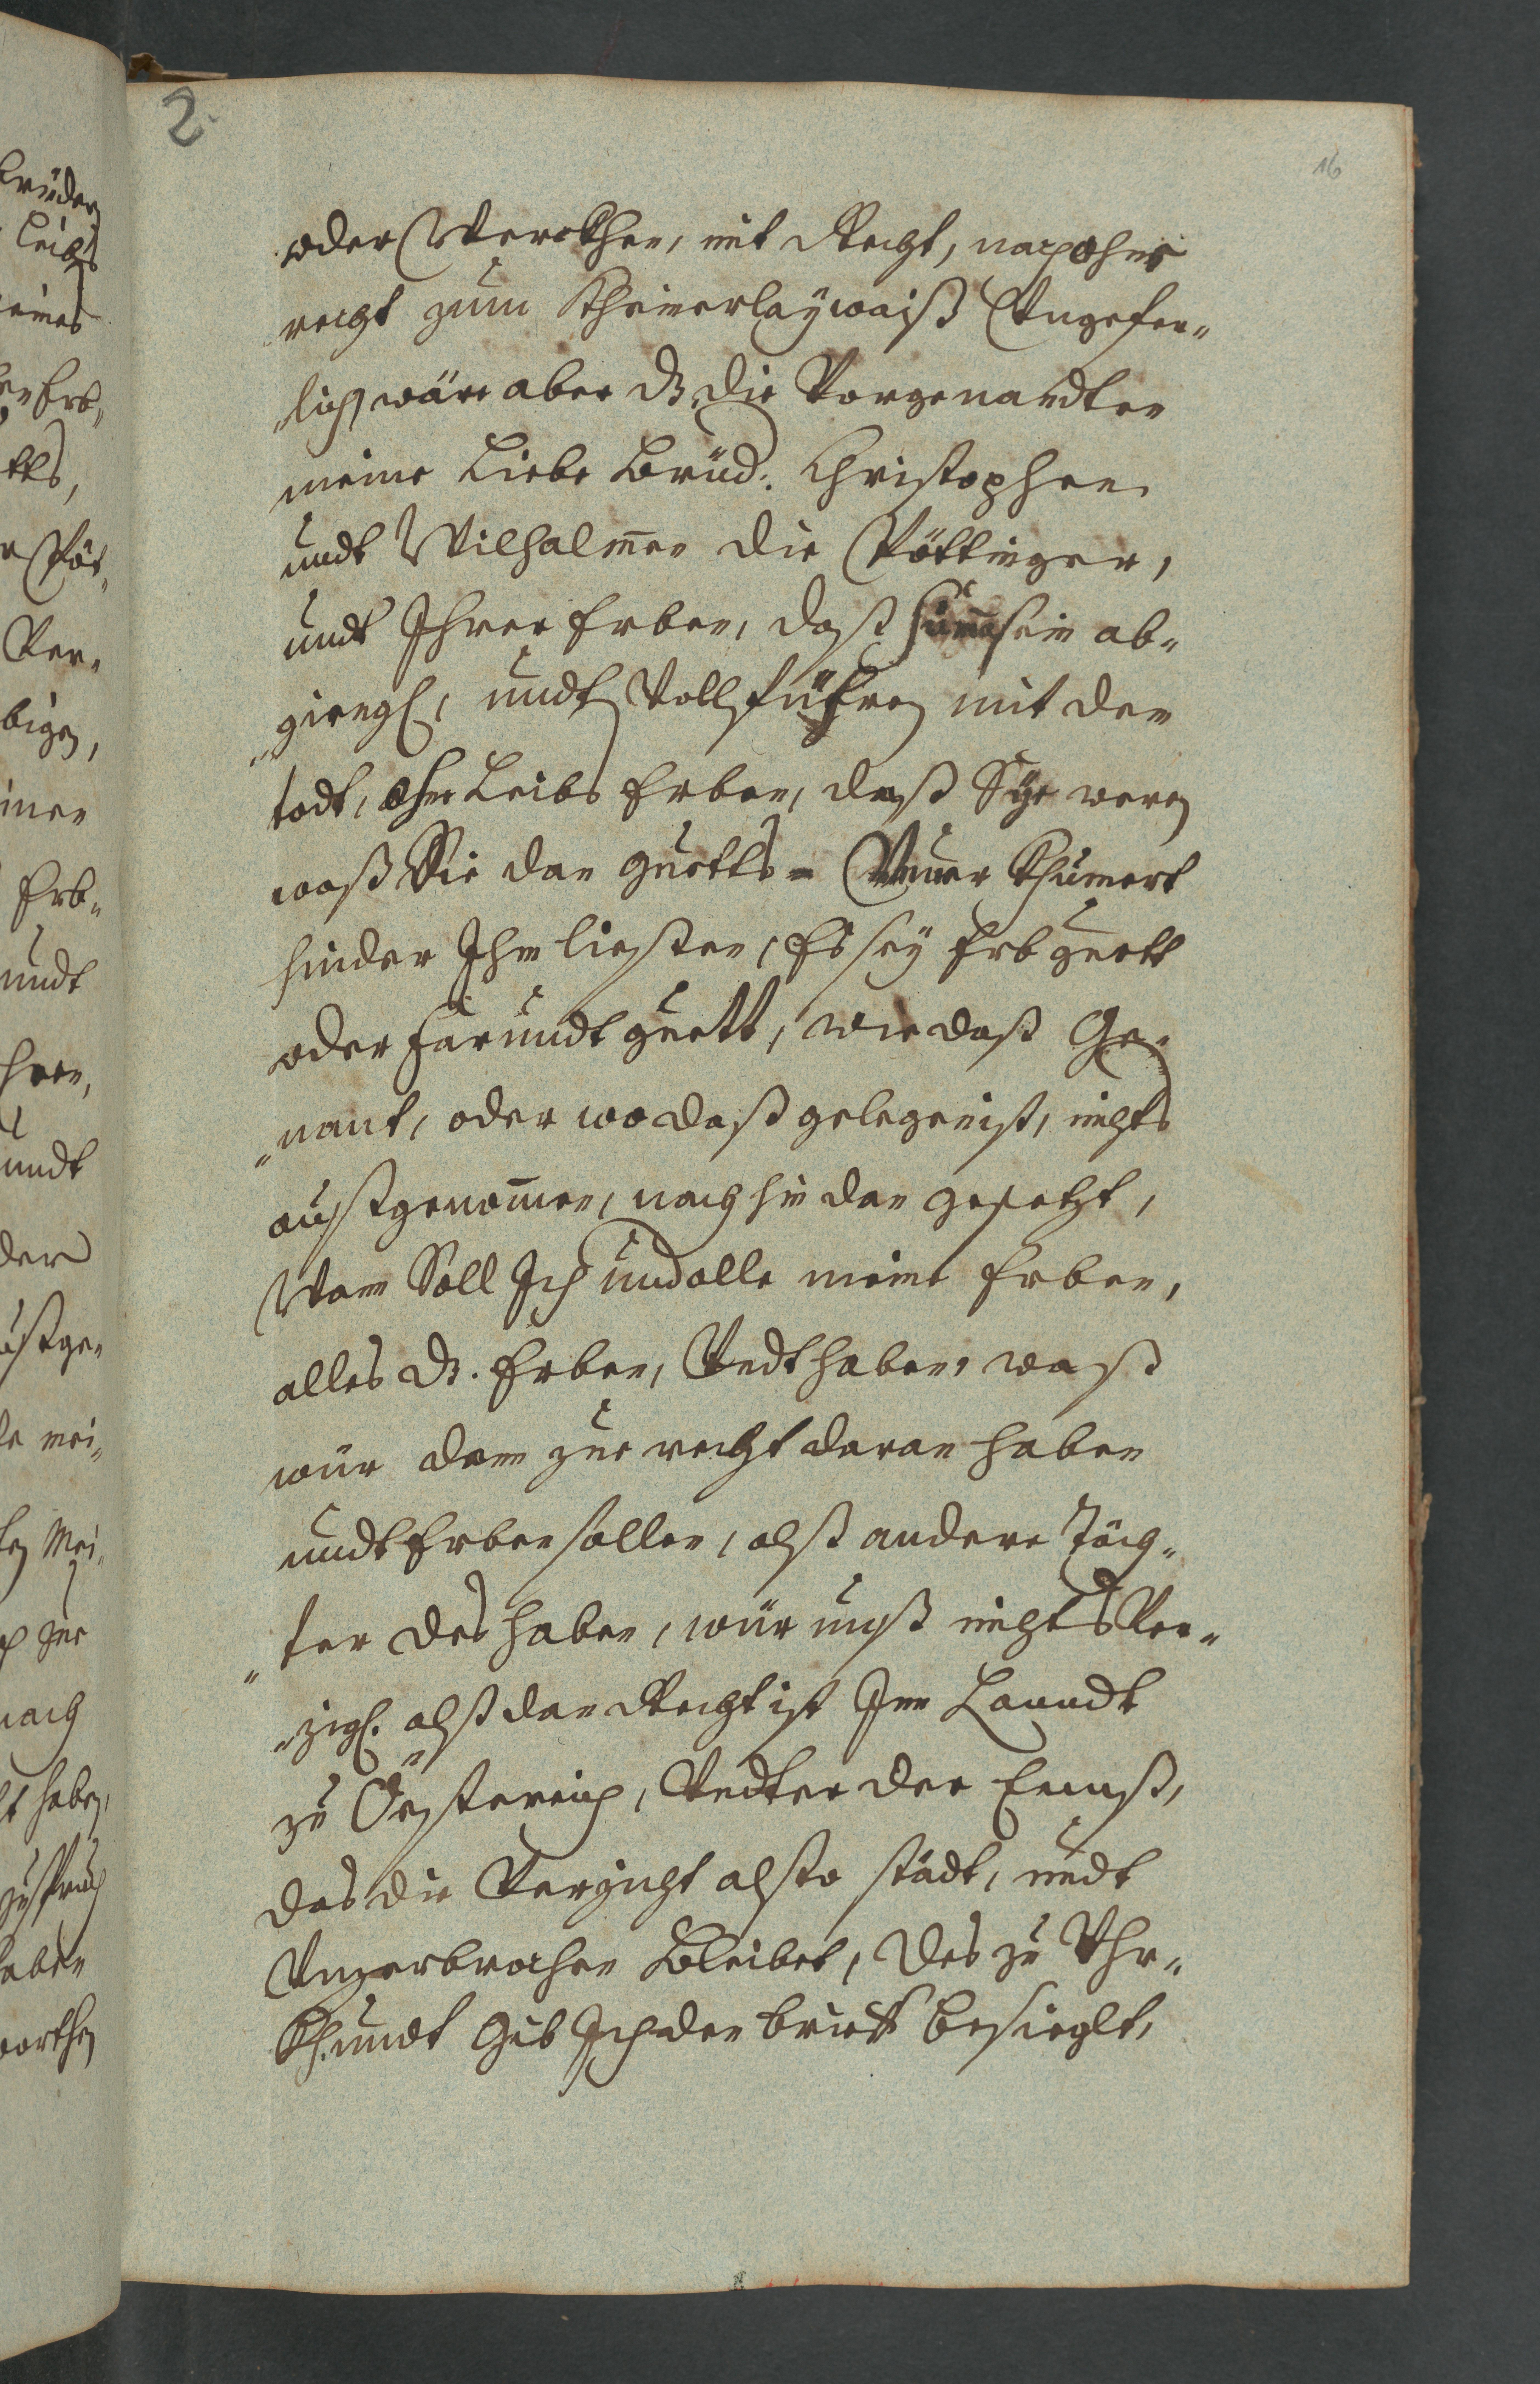 2.
16
oder Werckhen, mit Recht, nach ohne
recht zum Kheinerlaÿ waiß Vngefer„
„lich, wäre aber dz. die Vorgenandten
meine Liebe Brüd: Christophen
undt Wilhalmen die Pöttinger,
undt Ihrer Erben, daß Summ sein ab„
„giengh, undt Vollführen mit dem
todt, ohne Leibs Erben, daß Sÿe weren
waß Sie dan guetts = Immer Khumert
hinder Ihm liessen, Es seÿ Erb guett
oder farundt guett, wie daß Ge„
„nant, oder wo daß gelegen ist, nichts
außgenommen, noch hin dan gesetzt,
Wan Soll Ich und alle meine Erben,
alles dz. Erben, Vndt haben, waß
wür dann zue recht daran haben
undt Erben sollen, alß andere Töch„
„ter des haben, wür unß nichts Ver„
„zigh. alß dan Recht ist Im Lanndt
zu Össterreich, Vndter der Ennß,
das die Verzicht also städt, undt
Vnzerbrochen Bleibet, des zu Vhr„
Khundt Gib Ich den brieff besieglt,